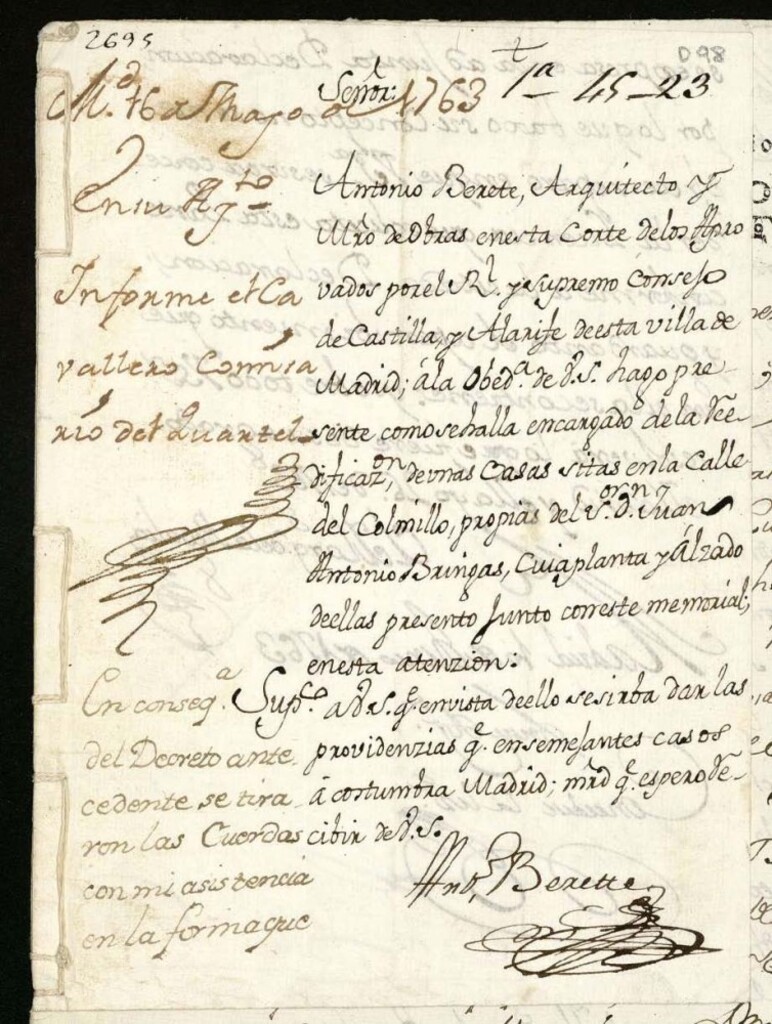 2695
098
Señor:
1ª 45-23
M.d 16 de Mayo de 1763
En su Ay.to
Informe el Ca
vallero Comisa
rio del Quartel
Antonio Berete, Arquitecto y
Mrô de Obras en esta Corte de los Apro
vados por el R.l y Supremo Consejo
de Castilla, y Alarife de esta villa de
Madrid; á la Obed.a de V.S. hago pre
sente como se halla encargado de la Ree
dificaz.on, de unas Casas sitas en la Calle
del Colmillo, propias del S.or d.n Juan
Antonio Bringas, Cuia planta y Alzado
de ellas presento Junto con este memorial;
en esta atenzion:
Sup.co a V.S. q.e en vista de ello se sirba dar las
providenzias q.e en semejantes casos
a costumbra Madrid; mrd q.e espero Re-
cibir de V.S.
Ant.o Berette
En conseq.a
del Decreto ante
cedente se tira
ron las Cuerdas
con mi asistencia
en la forma que